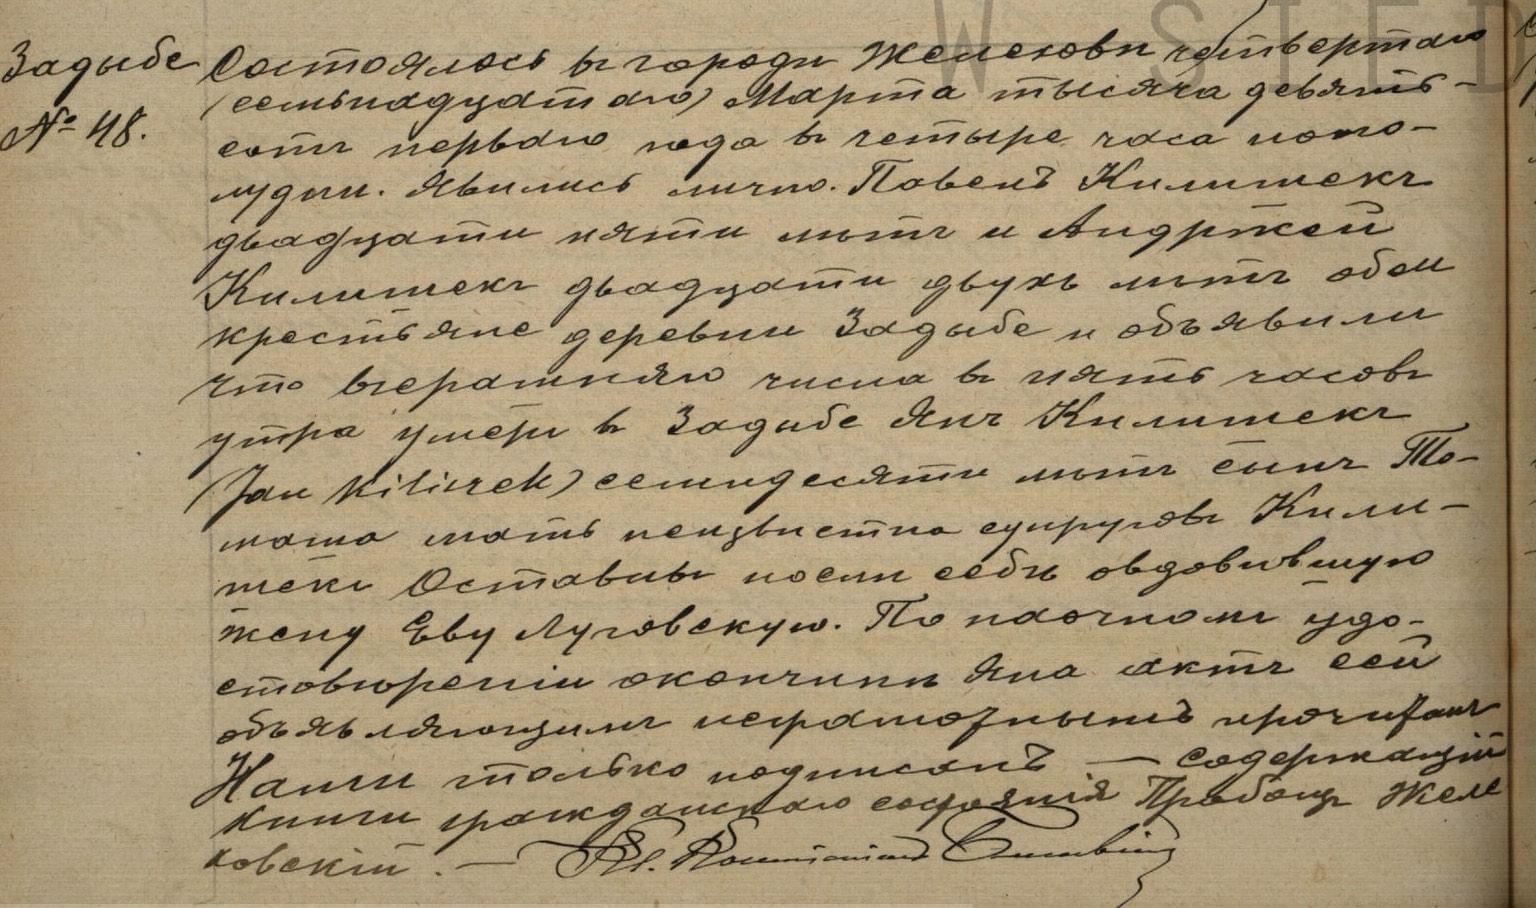 Задыбе
№ 48.
Состоялось въ городѣ Желеховѣ четвертаго
(семьнадцатаго) Марта тысяча девять-
сотъ перваго года въ четыре часа попо-
лудни. Явились лично. Павелъ Килишекъ
двадцати пяти лѣтъ и Анджей
Килишекъ двадцати двухъ лѣтъ оба
крестьяне деревни Задыбе и объявили
что вчерашняго числа въ пять часовъ
утра умеръ въ Задыбе Янъ Килишекъ
(Jan Kiliszek) семидесяти лѣтъ сынъ То-
маша мать неизвѣстна супруговъ Кили-
шекъ Оставивъ послѣ себя овдовѣвшую
жену Еву Луговскую. По наочномъ удо-
стовѣреніи кончины Яна актъ сей
объявляющимъ неграмотнымъ прочитанъ
Нами только подписанъ — Содержащій
книги гражданскаго состоянія Пробощъ Желе
ховскій. —